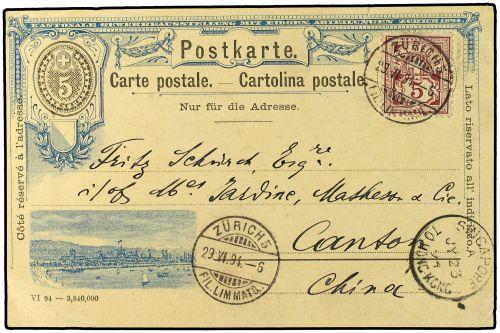 KANTONALE GEWERBEAUSSTELLUNG MIT EIDGEN. ABTEILUNGEN ZÜRICH 1894
Postkarte.
Carte postale. — Cartolina postale
Nur für die Adresse.
5
ZÜRICH 5
29.VI.94.-6
FIL.LIMMATQ.
5
Côté réservé à l'adresse.
Lato riservato all' indirizzo.
Fritz Schürch, Esqre.
i/of Mes Jardine, Matheson & Cie.
Canton
China
ZÜRICH 5
29.VI.94.-6
FIL.LIMMATQ.
SINGAPORE
TO HONG KONG
A
JY 23
VI 94 — 3,840,000